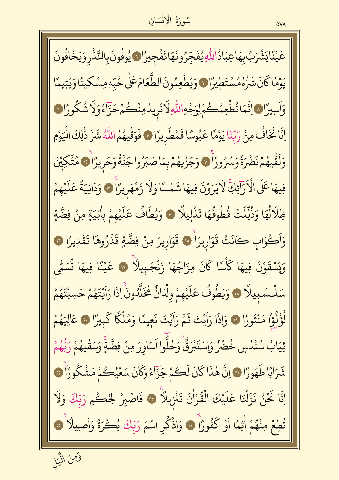 سُورَةُ الْاِنْسَانِ
٥٧٨
عَيْنًا يَشْرَبُ بِهَا عِبَادُ اللّٰهِ يُفَجِّرُونَهَا تَفْجِيرًا ۞ يُوفُونَ بِالنَّذْرِ وَيَخَافُونَ
يَوْمًا كَانَ شَرُّهُ مُسْتَطِيرًا ۞ وَيُطْعِمُونَ الطَّعَامَ عَلٰى حُبِّهِ مِسْكِينًا وَيَتِيمًا
وَاَسِيرًا ۞ اِنَّمَا نُطْعِمُكُمْ لِوَجْهِ اللّٰهِ لَا نُرِيدُ مِنْكُمْ جَزَٓاءً وَلَا شُكُورًا ۞
اِنَّا نَخَافُ مِنْ رَبِّنَا يَوْمًا عَبُوسًا قَمْطَرِيرًا ۞ فَوَقٰيهُمُ اللّٰهُ شَرَّ ذٰلِكَ الْيَوْمِ
وَلَقّٰيهُمْ نَضْرَةً وَسُرُورًا ۞ وَجَزٰيهُمْ بِمَا صَبَرُوا جَنَّةً وَحَرِيرًا ۞ مُتَّكِـِٔينَ
فِيهَا عَلَى الْاَرَٓائِكِ لَا يَرَوْنَ فِيهَا شَمْسًا وَلَا زَمْهَرِيرًا ۞ وَدَانِيَةً عَلَيْهِمْ
ظِلَالُهَا وَذُلِّلَتْ قُطُوفُهَا تَذْلِيلًا ۞ وَيُطَافُ عَلَيْهِمْ بِاٰنِيَةٍ مِنْ فِضَّةٍ
وَاَكْوَابٍ كَانَتْ قَوَارِيرَا۬ ۞ قَوَارِيرَ مِنْ فِضَّةٍ قَدَّرُوهَا تَقْدِيرًا ۞
وَيُسْقَوْنَ فِيهَا كَأْسًا كَانَ مِزَاجُهَا زَنْجَبِيلًا ۞ عَيْنًا فِيهَا تُسَمّٰى
سَلْسَبِيلًا ۞ وَيَطُوفُ عَلَيْهِمْ وِلْدَانٌ مُخَلَّدُونَ اِذَا رَاَيْتَهُمْ حَسِبْتَهُمْ
لُؤْلُؤًا مَنْثُورًا ۞ وَاِذَا رَاَيْتَ ثَمَّ رَاَيْتَ نَعِيمًا وَمُلْكًا كَبِيرًا ۞ عَالِيَهُمْ
ثِيَابُ سُنْدُسٍ خُضْرٌ وَاِسْتَبْرَقٌ وَحُلُّٓوا اَسَاوِرَ مِنْ فِضَّةٍ وَسَقٰيهُمْ رَبُّهُمْ
شَرَابًا طَهُورًا ۞ اِنَّ هٰذَا كَانَ لَكُمْ جَزَٓاءً وَكَانَ سَعْيُكُمْ مَشْكُورًا ۞
اِنَّا نَحْنُ نَزَّلْنَا عَلَيْكَ الْقُرْاٰنَ تَنْزِيلًا ۞ فَاصْبِرْ لِحُكْمِ رَبِّكَ وَلَا
تُطِعْ مِنْهُمْ اٰثِمًا اَوْ كَفُورًا ۞ وَاذْكُرِ اسْمَ رَبِّكَ بُكْرَةً وَاَصِيلًا ۞
وَمِنَ الَّيْلِ